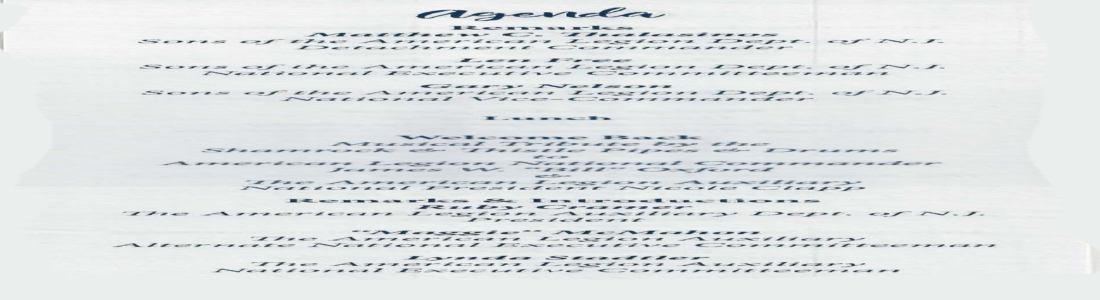 Agenda
Remarks
Matthew C.
Sons of the American Legion Dept. of N.J.
Detachment Commander
Len Free
Sons of the American Legion Dept. of N.J.
National Executive Committeeman
Gary Nelson
Sons of the American Legion Dept. of N.J.
National Vice-Commander
Lunch
Welcome Back
Musical Tribute by the
Shamrock & Thistle Pipes & Drums
to
American Legion National Commander
James W. "Bill" Oxford
&
The American Legion Auxiliary
National President Nicole Clapp
Remarks & Introductions
Ruby Cramer
The American Legion Auxiliary Dept. of N.J.
President
"Maggie" McMahon
The American Legion Auxiliary
Alternate National Executive Committeeman
Lynda Stadtler
The American Legion Auxiliary
National Executive Committeeman